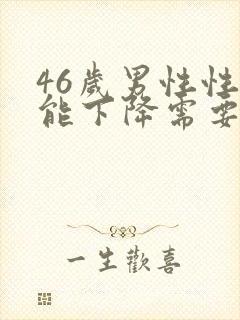 46歲男性性
能下降需要
一生歡喜